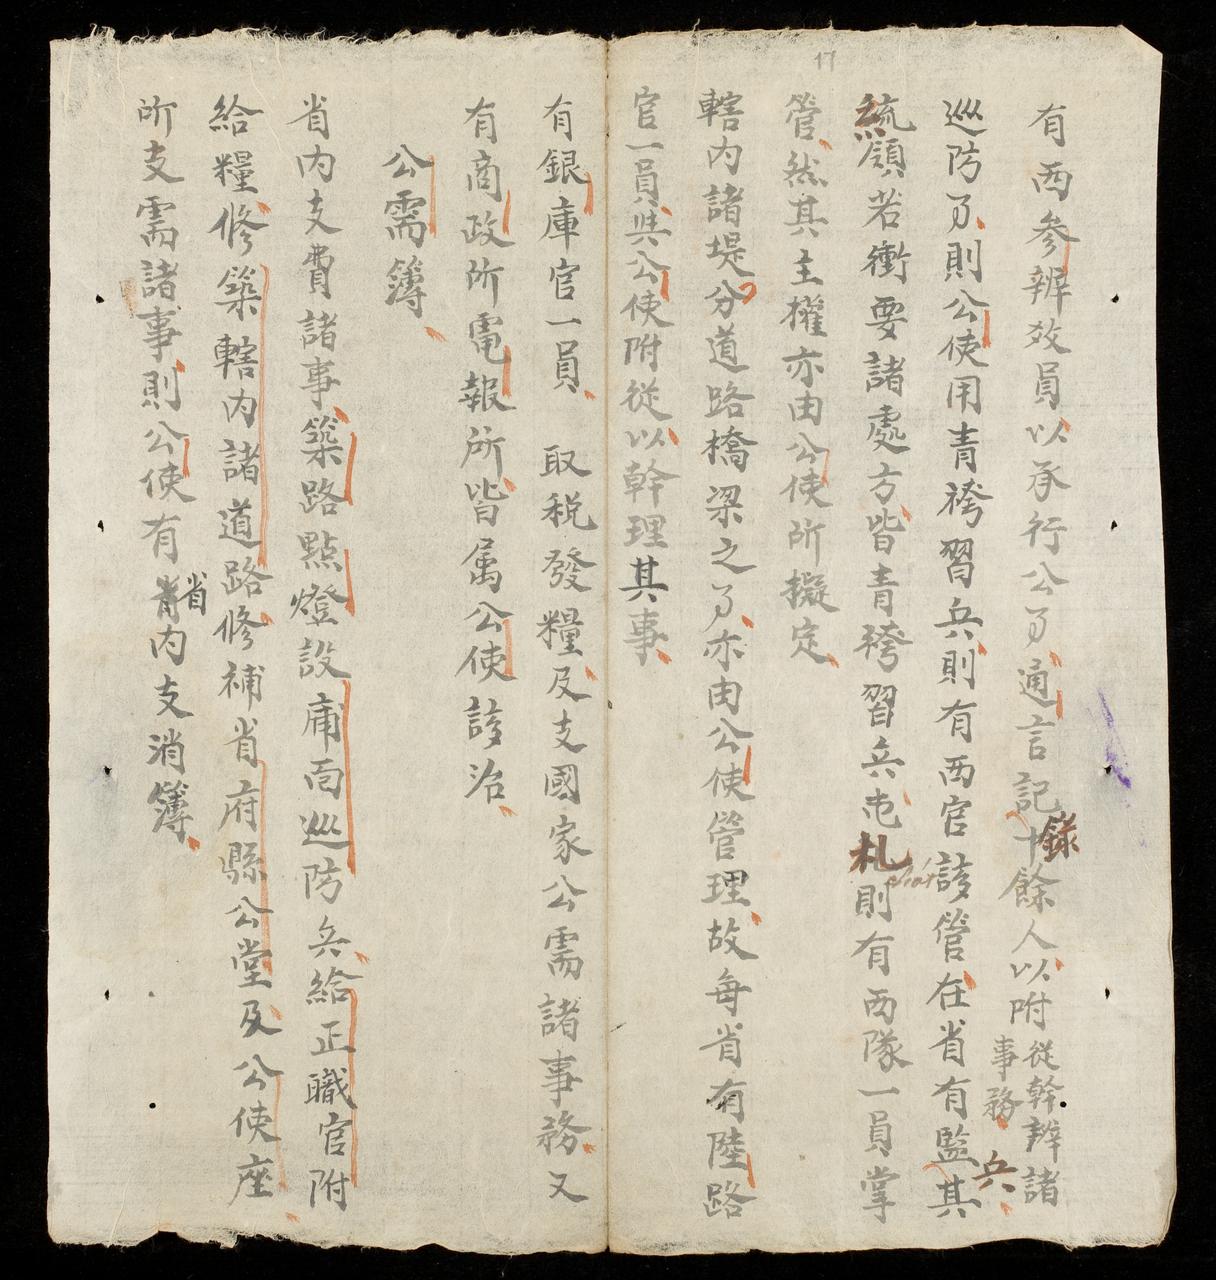 17
有西參辨效員以承行公𠄩通言記錄十餘人以附從幹辨諸事務
巡防𠄩則公使用青袴習兵則有西官該管在省有監兵其
統領若衝要諸處方皆青袴習兵屯札則有西隊一員掌
管然其主權亦由公使所擬定
轄内諸堤分道路橋梁之𠄩亦由公使管理故每省有陸路
官一員與公使附從以幹理其事
有銀庫官一員 取税發糧及支國家公需諸事務又
有商政所電報所皆属公使該治
公需簿
省内支費諸事築路點燈設庸面巡防兵給正職官附
給糧修築轄内諸道路修補省府縣公堂及公使座
所支需諸事則公使有省内支消簿